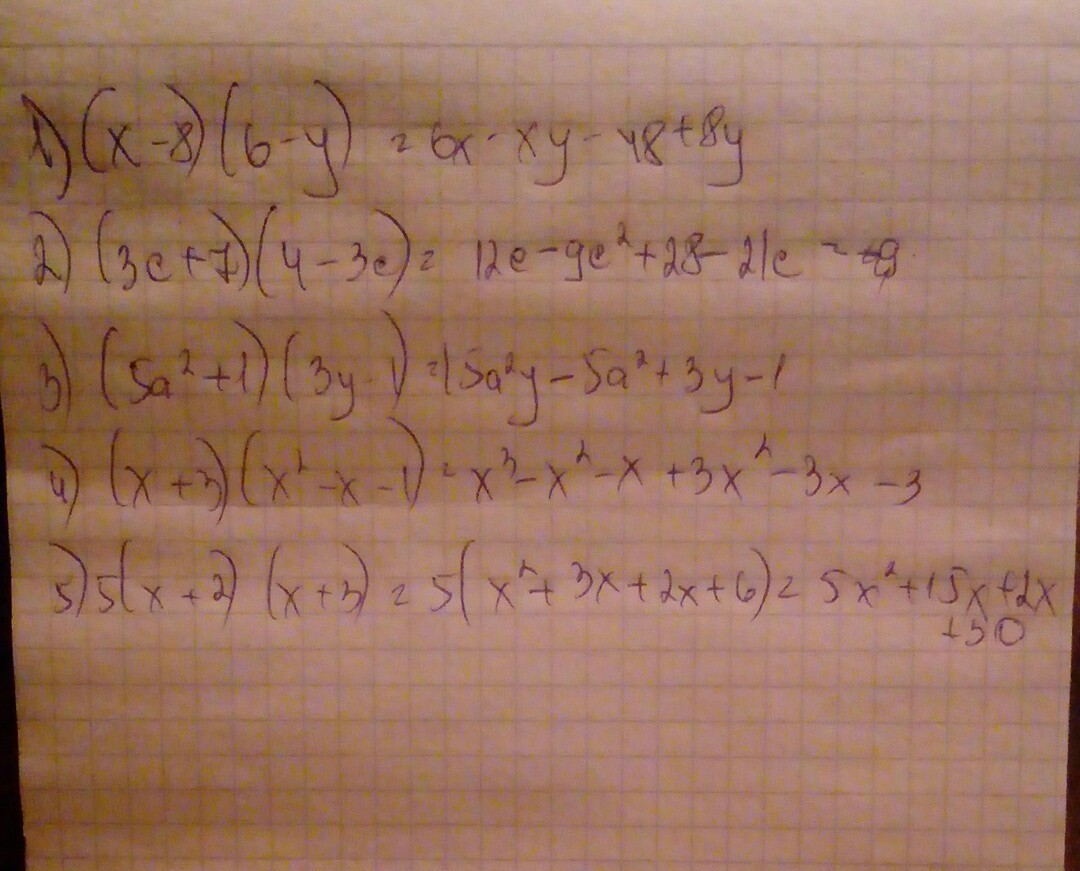 1) (x-8)(6-y) = 6x - xy - 48 + 8y
2) (3c+7)(4-3c) = 12c - 9c² + 28 - 21c = -9
3) (5a²+1)(3y-1) = 15a²y - 5a² + 3y - 1
4) (x+3)(x²-x-1) = x³ - x² - x + 3x² - 3x - 3
5) 5(x+2)(x+3) = 5(x² + 3x + 2x + 6) = 5x² + 15x + 2x
+30